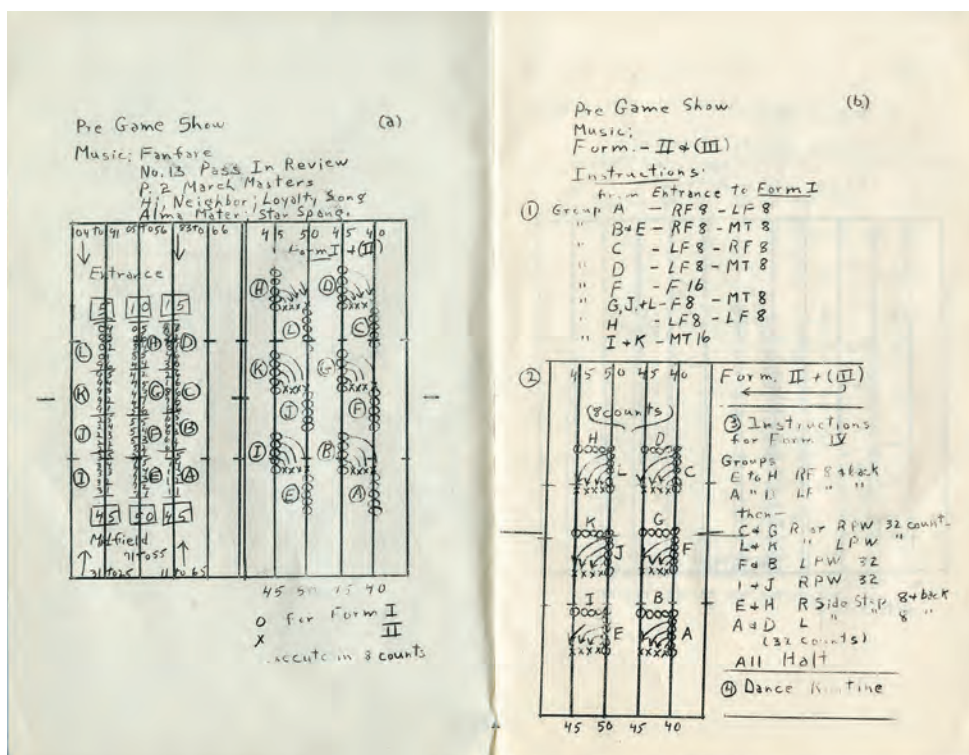 Pre Game Show (a)
Music: Fanfare
No. 13 Pass In Review
P. 2 March Masters
Hi, Neighbor; Loyalty Song
Alma Mater; Star Spang.
04 to 91 05 to 056 83 to 66
Entrance
5 10 15
L
K
J
I
H
G
F
E
D
C
B
A
45 50 45
Midfield
71 to 55
31 to 25 11 to 65
45 50 45 40
Form I + (II)
H D
L C
K G
J F
I B
E A
45 50 45 40
O for Form I
X II
execute in 8 counts
Pre Game Show (b)
Music:
Form. - II & (III)
Instructions:
from Entrance to Form I
① Group A - RF 8 - LF 8
" B & E - RF 8 - MT 8
" C - LF 8 - RF 8
" D - LF 8 - MT 8
" F - F 16
" G, J, + L - F 8 - MT 8
" H - LF 8 - LF 8
" I + K - MT 16
②
45 50 45 40
(8 counts)
H D
L C
K G
J F
I B
E A
45 50 45 40
Form. II + (III)
③ Instructions
for Form IV
Groups
E to H RF 8 & back
A " D LF " "
then -
C & G R or RPW 32 count.
L & K " LPW "
F & B LPW 32
I + J RPW 32
E & H R Side Step 8 & back
A & D L " " 8 "
(32 counts)
All Halt
④ Dance Routine